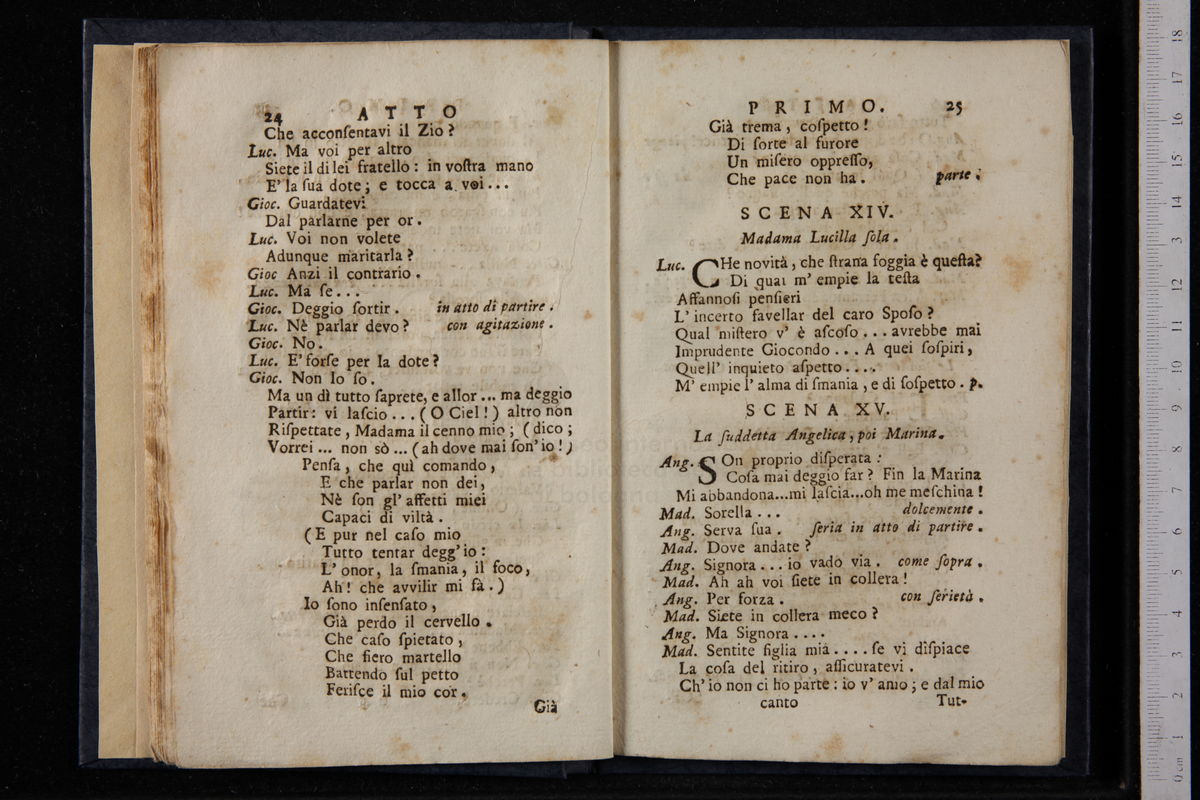 24 ATTO
Che acconſentavi il Zio?
Luc. Ma voi per altro
Siete il di lei fratello: in voſtra mano
E' la ſua dote; e tocca a voi...
Gioc. Guardatevi
Dal parlarne per or.
Luc. Voi non volete
Adunque maritarla?
Gioc Anzi il contrario.
Luc. Ma ſe...
Gioc. Deggio ſortir. in atto di partire.
Luc. Nè parlar devo? con agitazione.
Gioc. No.
Luc. E' forſe per la dote?
Gioc. Non lo ſo.
Ma un dì tutto ſaprete, e allor... ma deggio
Partir: vi laſcio... (O Ciel!) altro non
Riſpettate, Madama il cenno mio; (dico;
Vorrei... non sò... (ah dove mai ſon' io!)
Penſa, che quì comando,
E che parlar non dei,
Nè ſon gl' affetti miei
Capaci di viltà.
(E pur nel caſo mio
Tutto tentar degg' io:
L' onor, la ſmania, il foco,
Ah! che avvilir mi fà.)
Io ſono inſenſato,
Già perdo il cervello.
Che caſo ſpietato,
Che fiero martello
Battendo ſul petto
Feriſce il mio cor.
Già
PRIMO. 25
Già trema, coſpetto!
Di ſorte al furore
Un miſero oppreſſo,
Che pace non ha. parte.
SCENA XIV.
Madama Lucilla ſola.
Luc. CHe novità, che ſtrana foggia è queſta?
Di quai m' empie la teſta
Affannoſi penſieri
L' incerto favellar del caro Spoſo?
Qual miſtero v' è aſcoſo... avrebbe mai
Imprudente Giocondo... A quei ſoſpiri,
Quell' inquieto aſpetto....
M' empie l' alma di ſmania, e di ſoſpetto. p.
SCENA XV.
La ſuddetta Angelica, poi Marina.
Ang. SOn proprio diſperata:
Coſa mai deggio far? Fin la Marina
Mi abbandona...mi laſcia...oh me meſchina!
Mad. Sorella... dolcemente.
Ang. Serva ſua. ſeria in atto di partire.
Mad. Dove andate?
Ang. Signora... io vado via. come ſopra.
Mad. Ah ah voi ſiete in collera!
Ang. Per forza. con ſerietà.
Mad. Siete in collera meco?
Ang. Ma Signora....
Mad. Sentite figlia mia.... ſe vi diſpiace
La coſa del ritiro, aſſicuratevi.
Ch' io non ci ho parte: io v' amo; e dal mio
canto Tut-